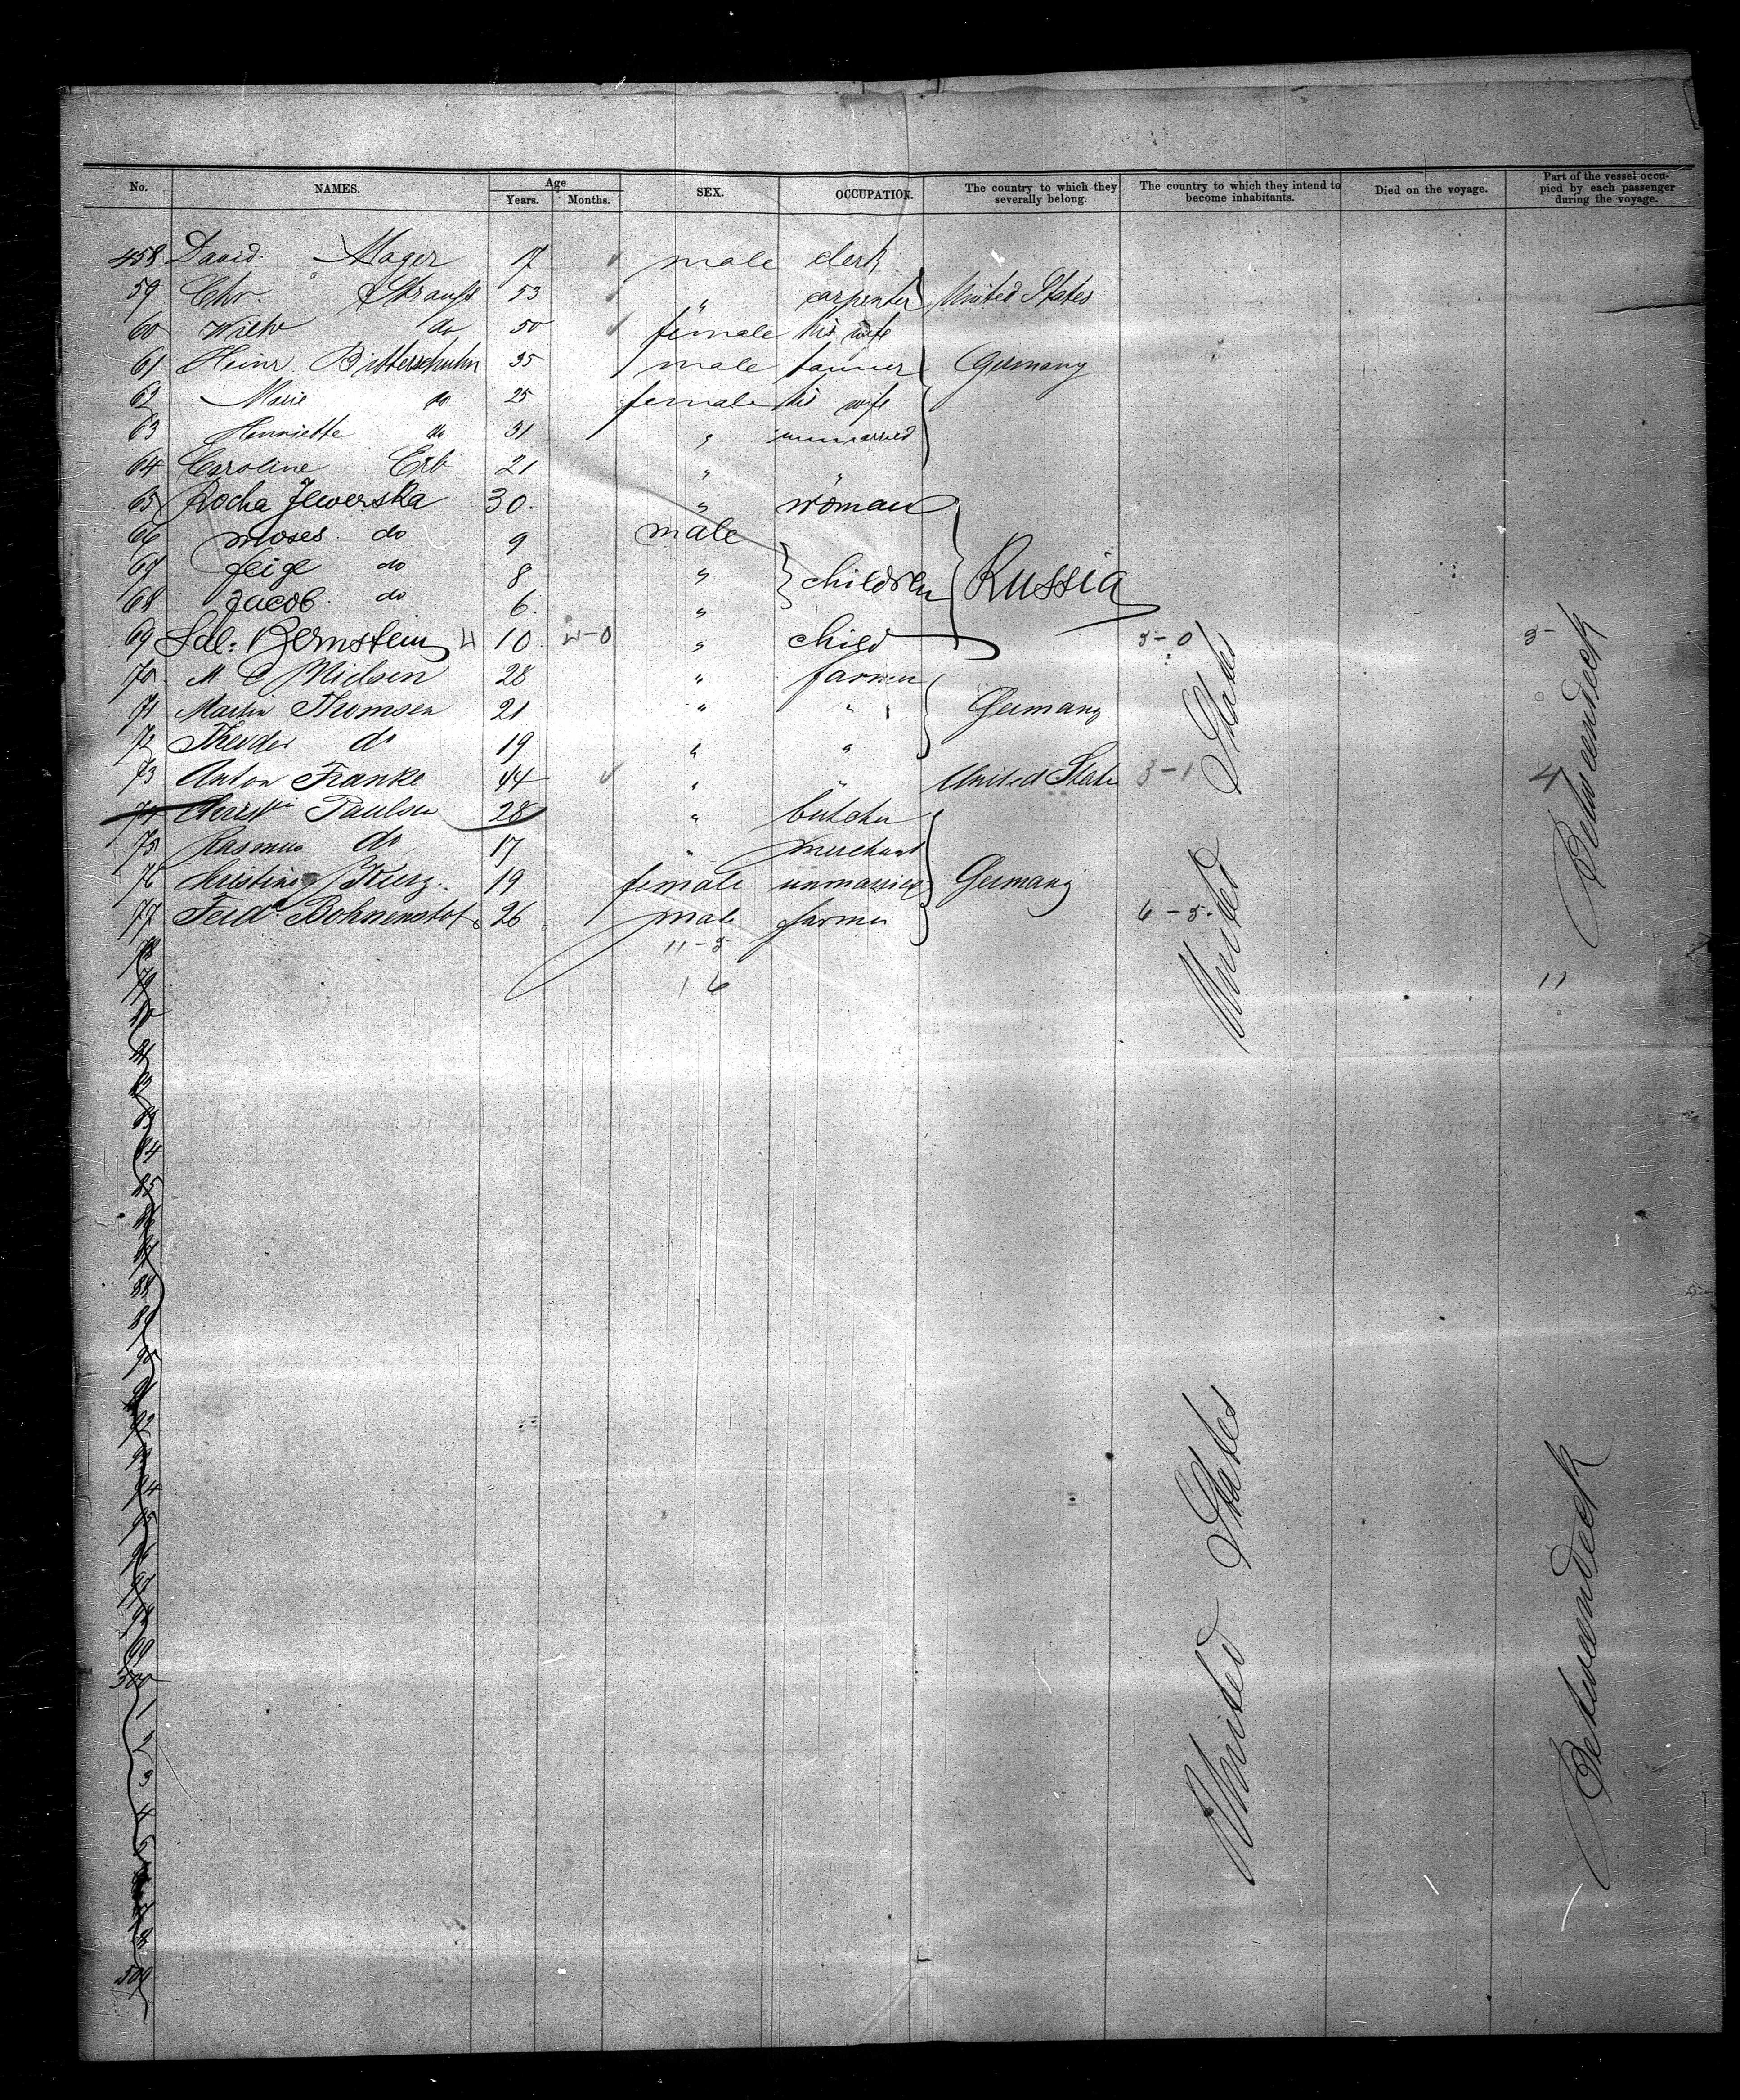 No. NAMES. Age Years. Months. SEX. OCCUPATION. The country to which they severally belong. The country to which they intend to become inhabitants. Died on the voyage. Part of the vessel occupied by each passenger during the voyage.
458 David Mager 17 male clerk
59 Chr. Strauss 53 " carpenter United States
60 Wilhe do 50 female his wife
61 Heinr. Bitterschuhn 35 male Germany
62 Marie do 25 female his wife
63 Henriette do 31 " unmarried
64 Caroline Erb 21 " "
65 Rocha Jewerska 30. " woman
66 Moses do 9 male
67 feige do 8 " children Russia
68 Jacob do 6. "
69 Sal: Bernstein 4 10 " child 5-0
70 M C Nielsen 28 " farmer
71 Martin Thomsen 21 " " Germany
72 Theodor do 19 " "
73 Anton Franke 44 " " United State 3-1 4
74 Paulsen 28 " butcher
75 Rasmus do 17 " merchant
76 Christine Kurz. 19 female unmarried Germany
77 Ferd. Bohnenstof 26 male farmer 6-5.
11-5
16 11
United States
Betweendeck
78
79
84
85
88
89
92
94
99
500
1
2
3
4
509
United States
Betweendeck